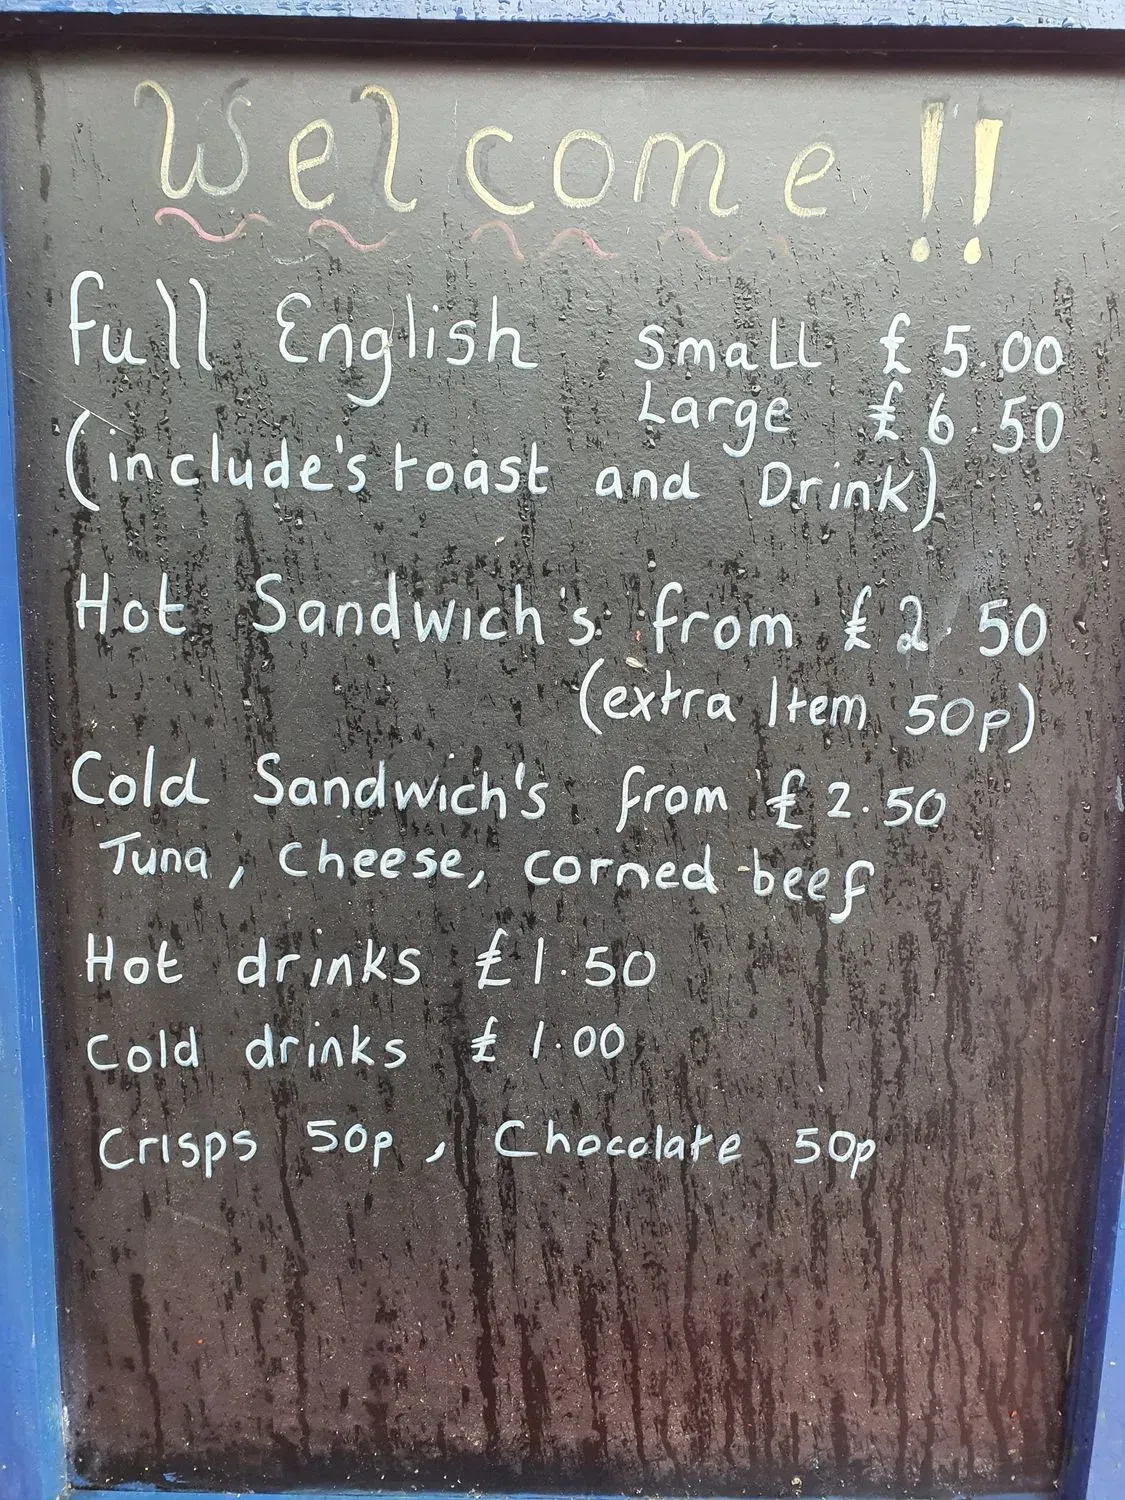 Welcome!!
Full English Small £5.00
Large £6.50
(include's toast and Drink)
Hot Sandwich's from £2.50
(extra Item 50p)
Cold Sandwich's from £2.50
Tuna, Cheese, corned beef
Hot drinks £1.50
Cold drinks £1.00
Crisps 50p, Chocolate 50p